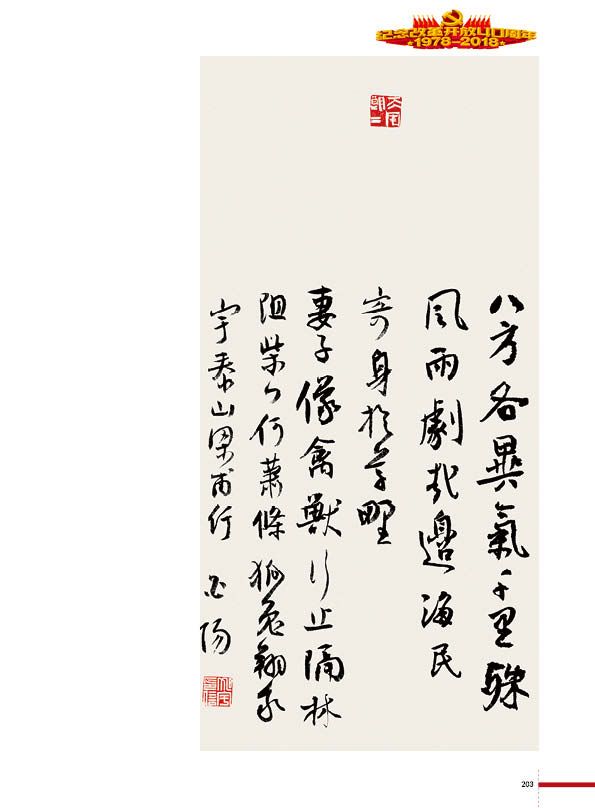 纪念改革开放40周年
1978-2018
八方各異氣千里殊
風雨劇哉邊海民
寄身於草野
妻子像禽獸行止隔林
阻柴门何蕭條狐兔翔我
宇泰山梁甫行
203